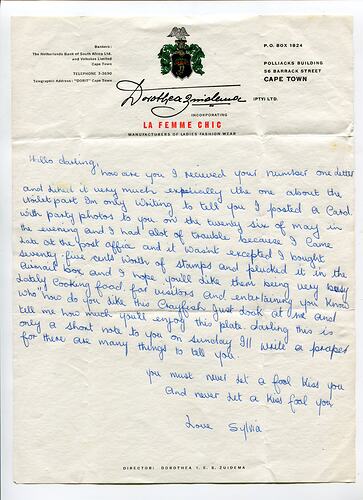 Bankers:
The Netherlands Bank of South Africa Ltd.
and Volkskas Limited
Cape Town
TELEPHONE 3-5690
Telegraphic Address: "DORIT" Cape Town
P.O. BOX 1824
POLLIACKS BUILDING
56 BARRACK STREET
CAPE TOWN
Dorothea Zuidema (PTY) LTD.
INCORPORATING
LA FEMME CHIC
MANUFACTURERS OF LADIES FASHION WEAR
Hello darling,
how are you I received your number one letter
and liked it very much expecially the one about the
violet part Im only writing to tell you I posted a Card
with party photos to you on the twenty six of may in
the evening and I had alot of trouble because I came
late at the post office and it wasint excepted I bought
seventy-five cents worth of stamps and plucked it in the
airmail box and I hope you'll like them being very busy
lately cooking food for visitors and entertaining you know
who how do you like this Crayfish Just look at me and
tell me how much you'll enjoy this plate. darling this is
only a short note to you on sunday I'll write a proper
for there are many things to tell you
you must never let a fool kiss you
and never let a kiss fool you
Love Sylvia
DIRECTOR: DOROTHEA I. E. S. ZUIDEMA